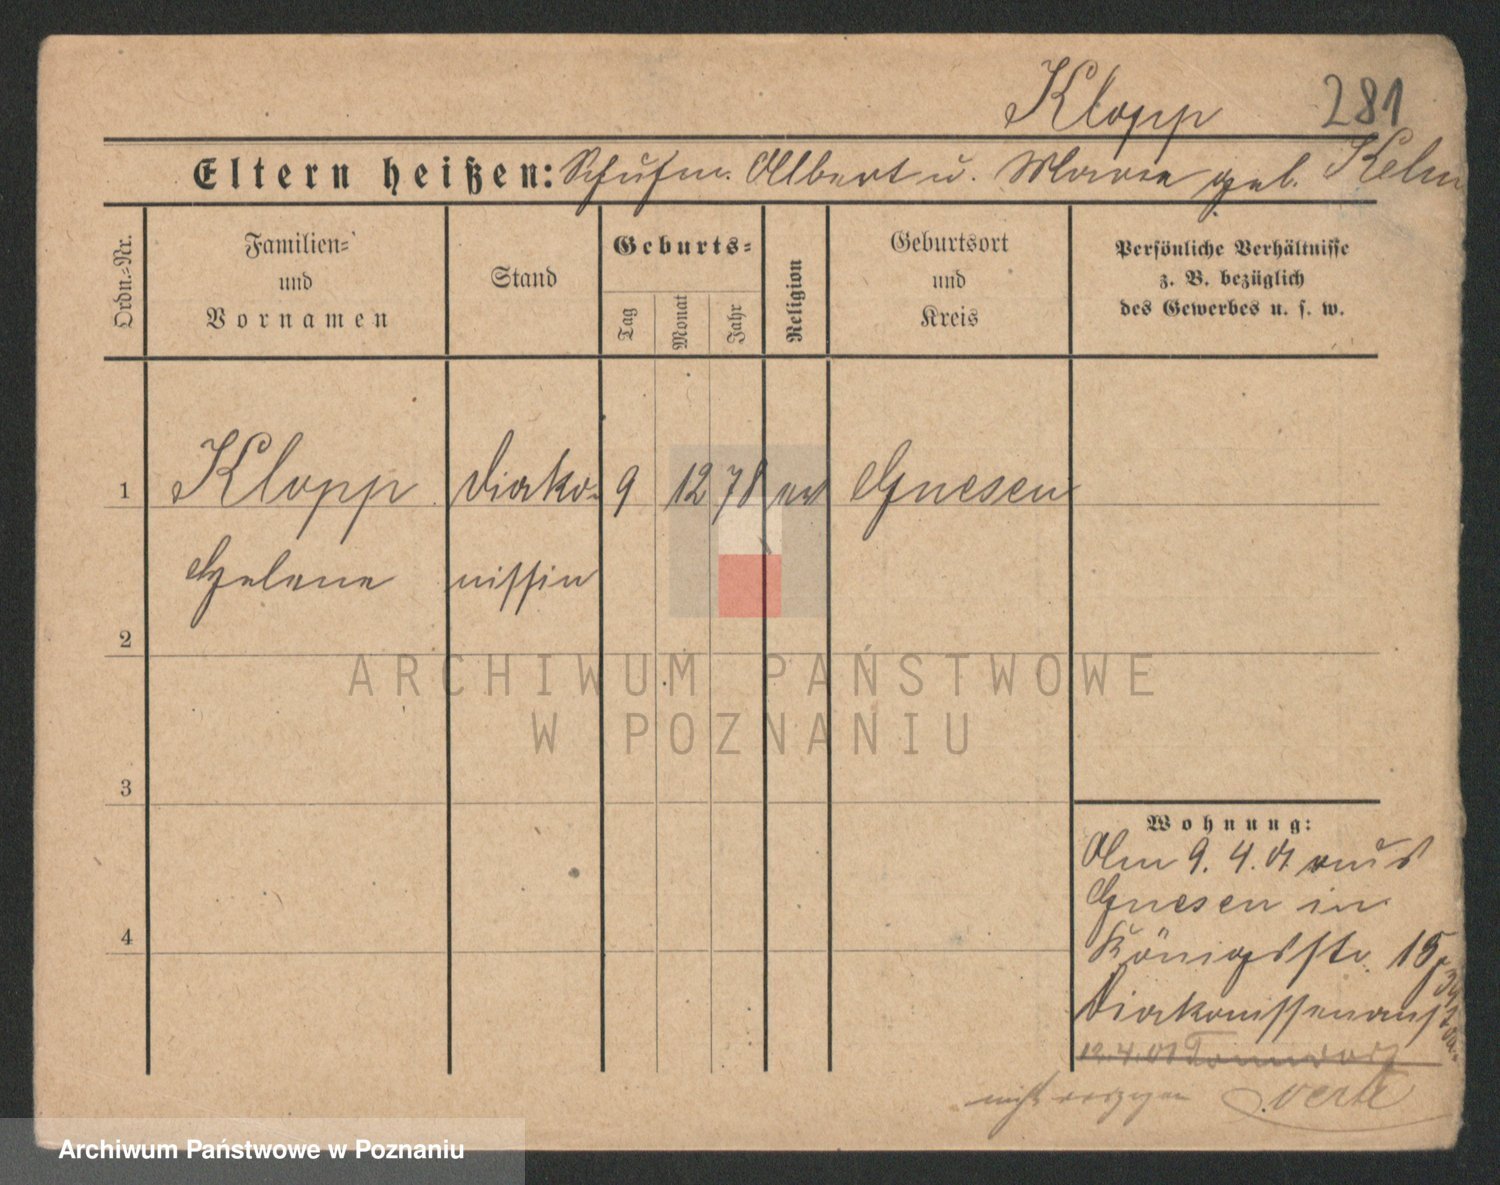 Klopp 281
Eltern heißen: Schuhm. Albert u. Marie geb. Kelm
Ordn.-Nr.
Familien-
und
Vornamen
Stand
Geburts-
Tag
Monat
Jahr
Religion
Geburtsort
und
Kreis
Persönliche Verhältnisse
z. B. bezüglich
des Gewerbes u. s. w.
1 Klopp Diako- 9 12 78 ev Gnesen
Helene nissin
2
3
4
Wohnung:
Am 9. 4. 01 aus
Gnesen in
Königsstr. 15
Diakonissenanst
12.4.01
verte
ARCHIWUM PAŃSTWOWE
W POZNANIU
Archiwum Państwowe w Poznaniu